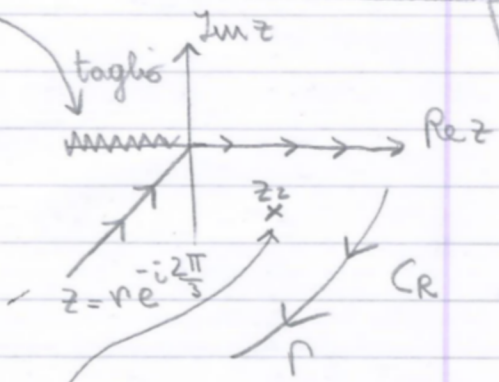 Im z
taglio
Re z
z₂
z = re^{-i 2π/3}
C_R
Γ